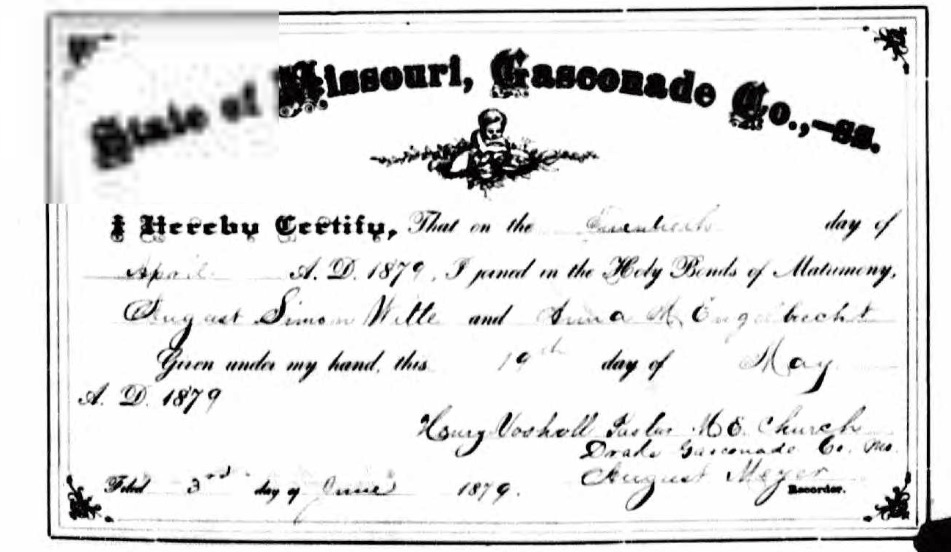 State of Missouri, Gasconade Co.,—ss.
I Hereby Certify, That on the day of
April A. D. 1879, I joined in the Holy Bonds of Matrimony,
August Simon Witte and Anna M Engelbrecht
Given under my hand, this 19th day of May
A. D. 1879
Henry Vosholl Pastor M. E. Church
Drake Gasconade Co. Mo.
August Meyer
Filed 3rd day of June 1879. Recorder.